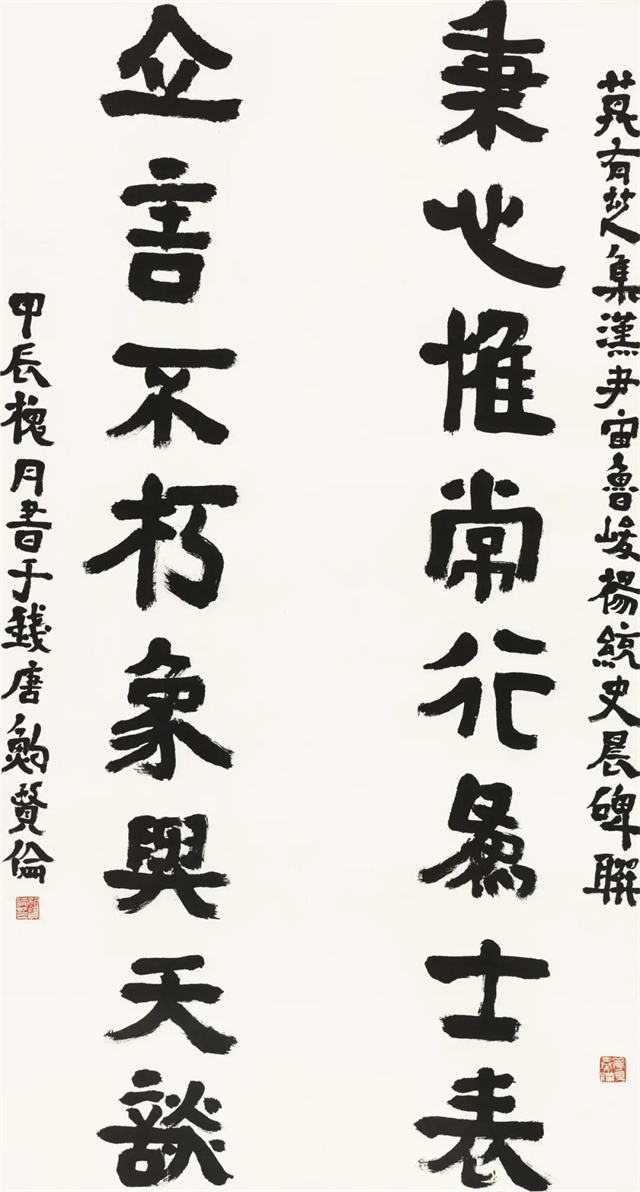 莫有芝集漢尹宙魯峻楊統史晨碑聯
秉心惟常行為士表
立言不朽象與天談
甲辰槐月書于錢唐鮑賢倫